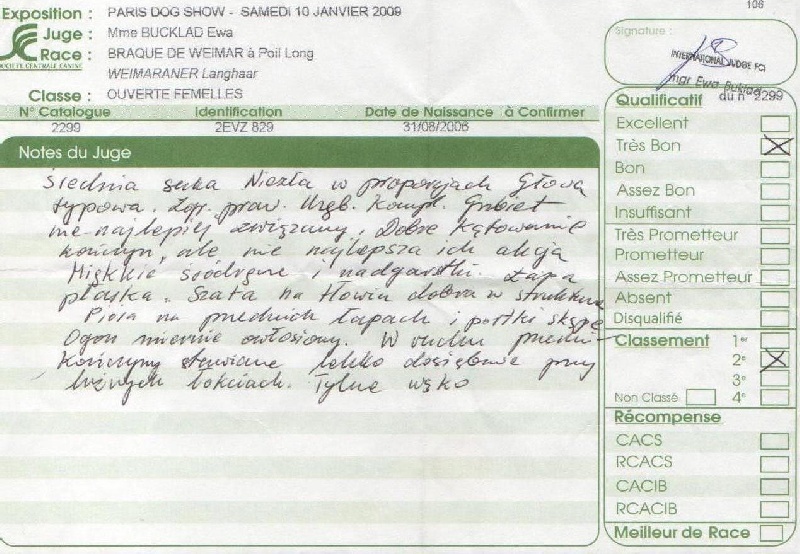 106
Exposition : PARIS DOG SHOW - SAMEDI 10 JANVIER 2009
Juge : Mme BUCKLAD Ewa
Race : BRAQUE DE WEIMAR à Poil Long
WEIMARANER Langhaar
SOCIÉTÉ CENTRALE CANINE
Classe : OUVERTE FEMELLES
N° Catalogue Identification Date de Naissance à Confirmer
2299 2EVZ 829 31/08/2006
Notes du Juge
Średnia suka Niezła w proporcjach Głowa
typowa. Zgr. praw. Uzęb. Kompl. Grzbiet
nie najlepiej związany. Dobre kątowanie
kończyn, ale nie najlepsza ich akcja
Miękkie śródręcze i nadgarstki. Łapa
płaska. Szata na tłowiu dobra w strukturze
Pióra na przednich łapach i portki skąpe
Ogon miernie owłosiony. W ruchu przednie
kończyny stawiane lekko dośiębnie przy
luźnych łokciach. Tylne wąsko
Signature :
INTERNATIONAL JUDGE FCI
mgr Ewa Bukład
Qualificatif du n° 2299
Excellent
Très Bon
Bon
Assez Bon
Insuffisant
Très Prometteur
Prometteur
Assez Prometteur
Absent
Disqualifié
Classement 1er
2e
3e
Non Classé 4e
Récompense
CACS
RCACS
CACIB
RCACIB
Meilleur de Race